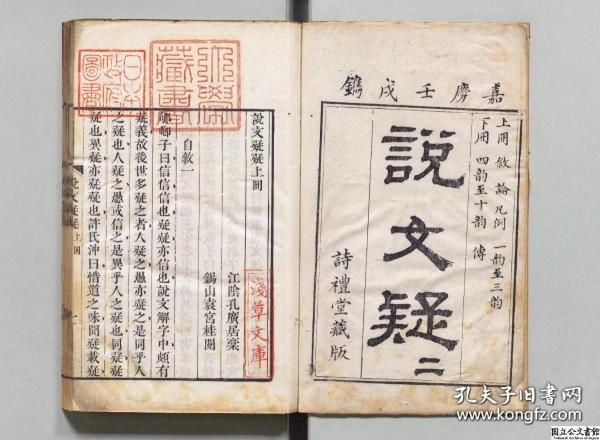 嘉慶壬戌鐫
上冊 敘 論 凡例 一韵至三韵
下冊 四韵至十韵 傳
說文疑二
詩禮堂藏版
說文疑疑上冊
江陰孔廣居稾
錫山袁宮桂閱
自敘一
郇卿子曰信信信也疑疑亦信也說文解字中頗有
疑義故後世多疑之者人疑之愚亦疑之是同乎人
之疑也人疑之愚或信之是異乎人之疑也同疑疑
疑也異疑亦疑疑也許氏沖曰惜道之味聞疑載疑
說文疑疑上冊
一
昌平學藏書
日本政府圖書
淺草文庫
孔夫子旧书网
www.kongfz.com
国立公文書館
National Archives of Japan